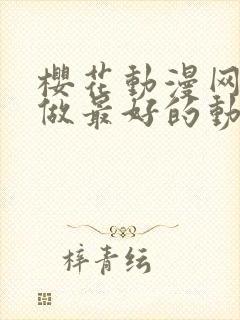 櫻花動漫网
做最好的動
梓青纭